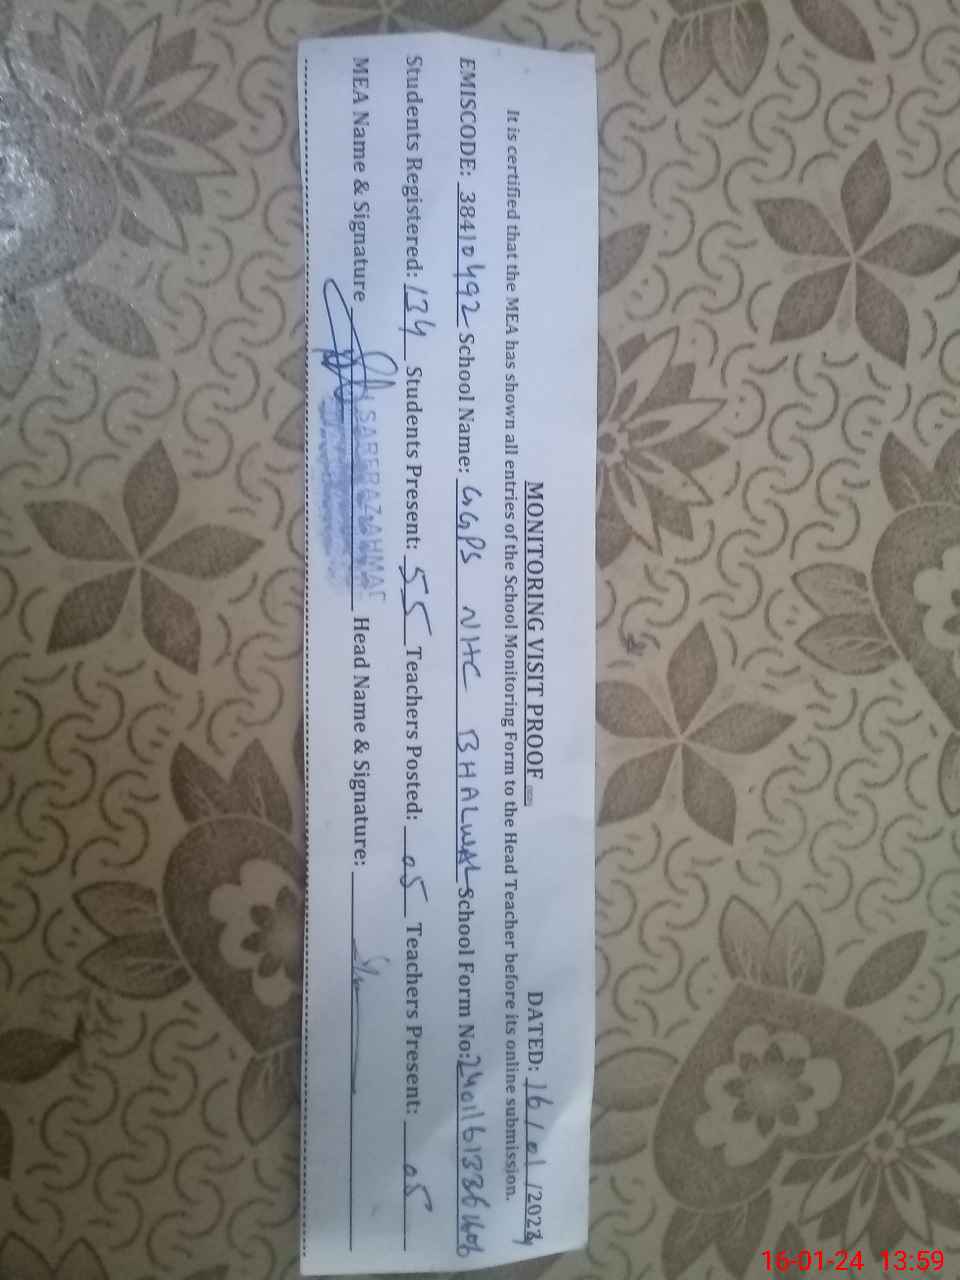 MONITORING VISIT PROOF DATED: 16/01/2024
It is certified that the MEA has shown all entries of the School Monitoring Form to the Head Teacher before its online submission.
EMISCODE: 38410492 School Name: GGPS NHC BHALWAL School Form No:
Students Registered: 134 Students Present: 55 Teachers Posted: 05 Teachers Present: 05
MEA Name & Signature SARFRAZ AHMAD Head Name & Signature:
16-01-24 13:59